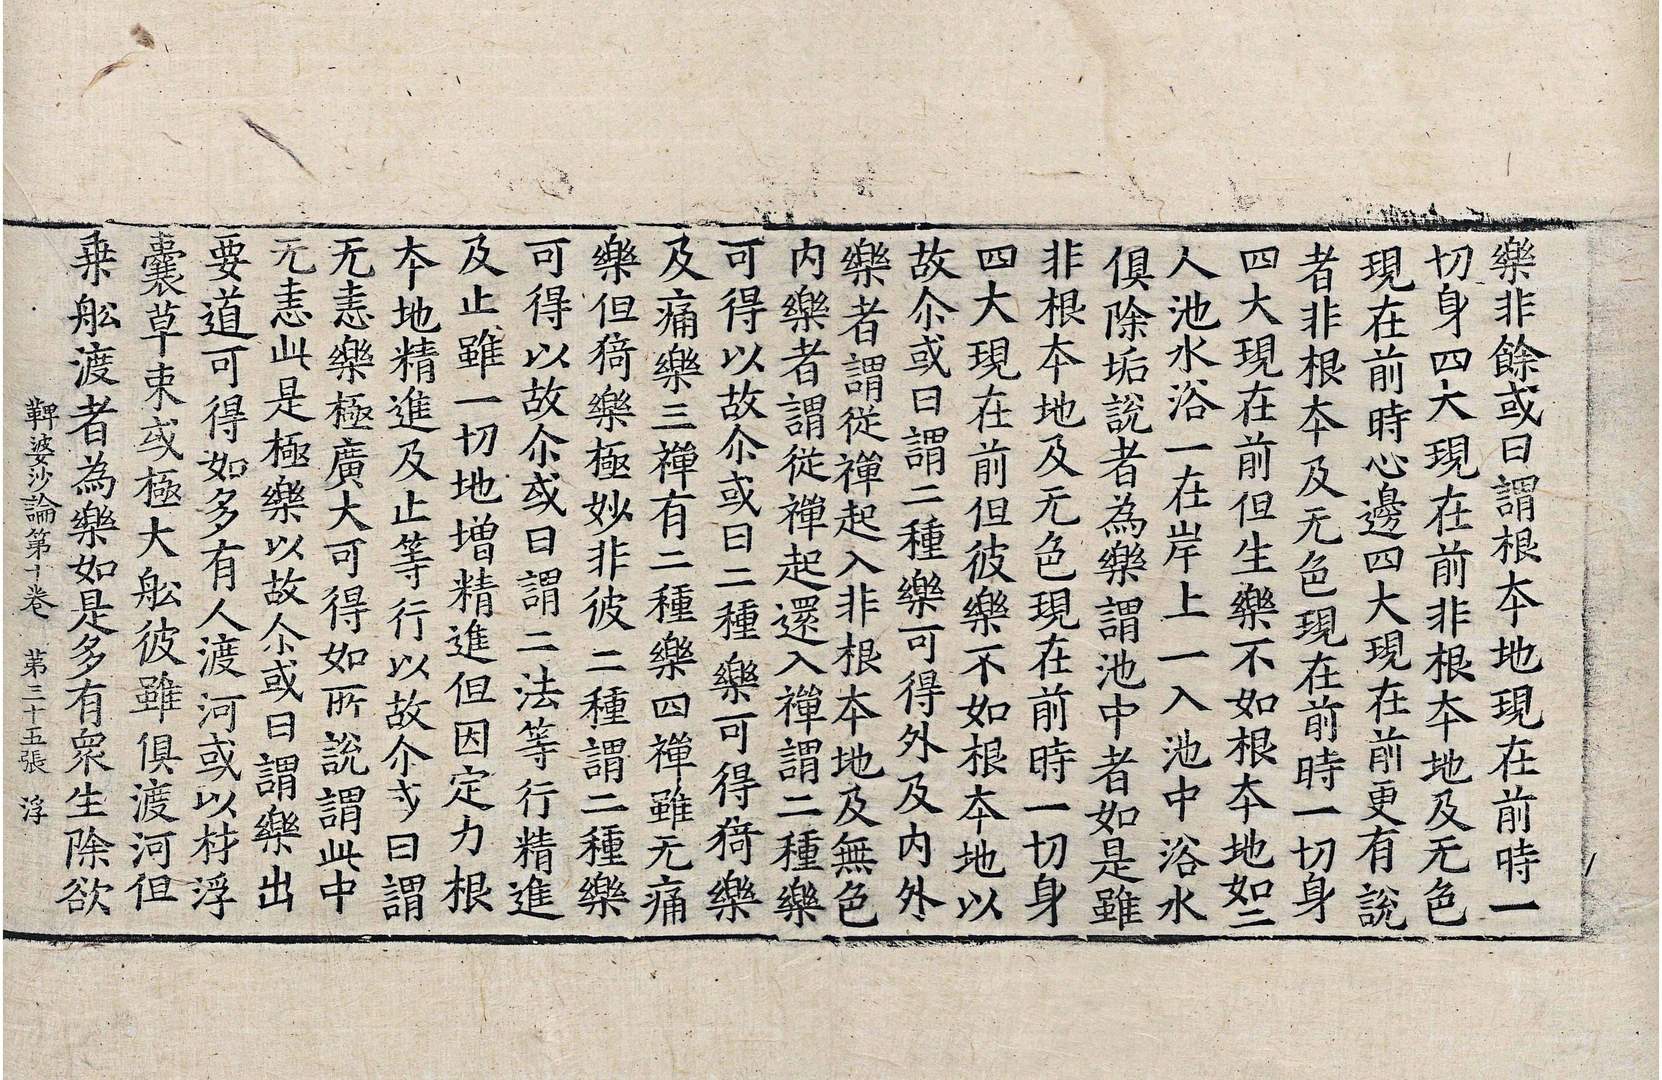 樂非餘或曰謂根夲地現在前時一
切身四大現在前非根夲地及无色
現在前時心邊四大現在前更有說
者非根夲及无色現在前時一切身
四大現在前但生樂不如根夲地如二
人池水浴一在岸上一入池中浴水
俱除垢說者為樂謂池中者如是雖
非根夲地及无色現在前時一切身
四大現在前但彼樂不如根夲地以
故尒或曰謂二種樂可得外及内外
樂者謂從禪起入非根夲地及無色
内樂者謂從禪起還入禪謂二種樂
可得以故尒或曰二種樂可得猗樂
及痛樂三禪有二種樂四禪雖无痛
樂但猗樂極妙非彼二種謂二種樂
可得以故尒或曰謂二法等行精進
及止雖一切地增精進但因定力根
夲地精進及止等行以故尒或曰謂
无恚樂極廣大可得如所說謂此中
无恚此是極樂以故尒或曰謂樂出
要道可得如多有人渡河或以材浮
囊草束或極大舩彼雖俱渡河但
乗舩渡者為樂如是多有衆生除欲
鞞婆沙論第十卷 第三十五張 浮